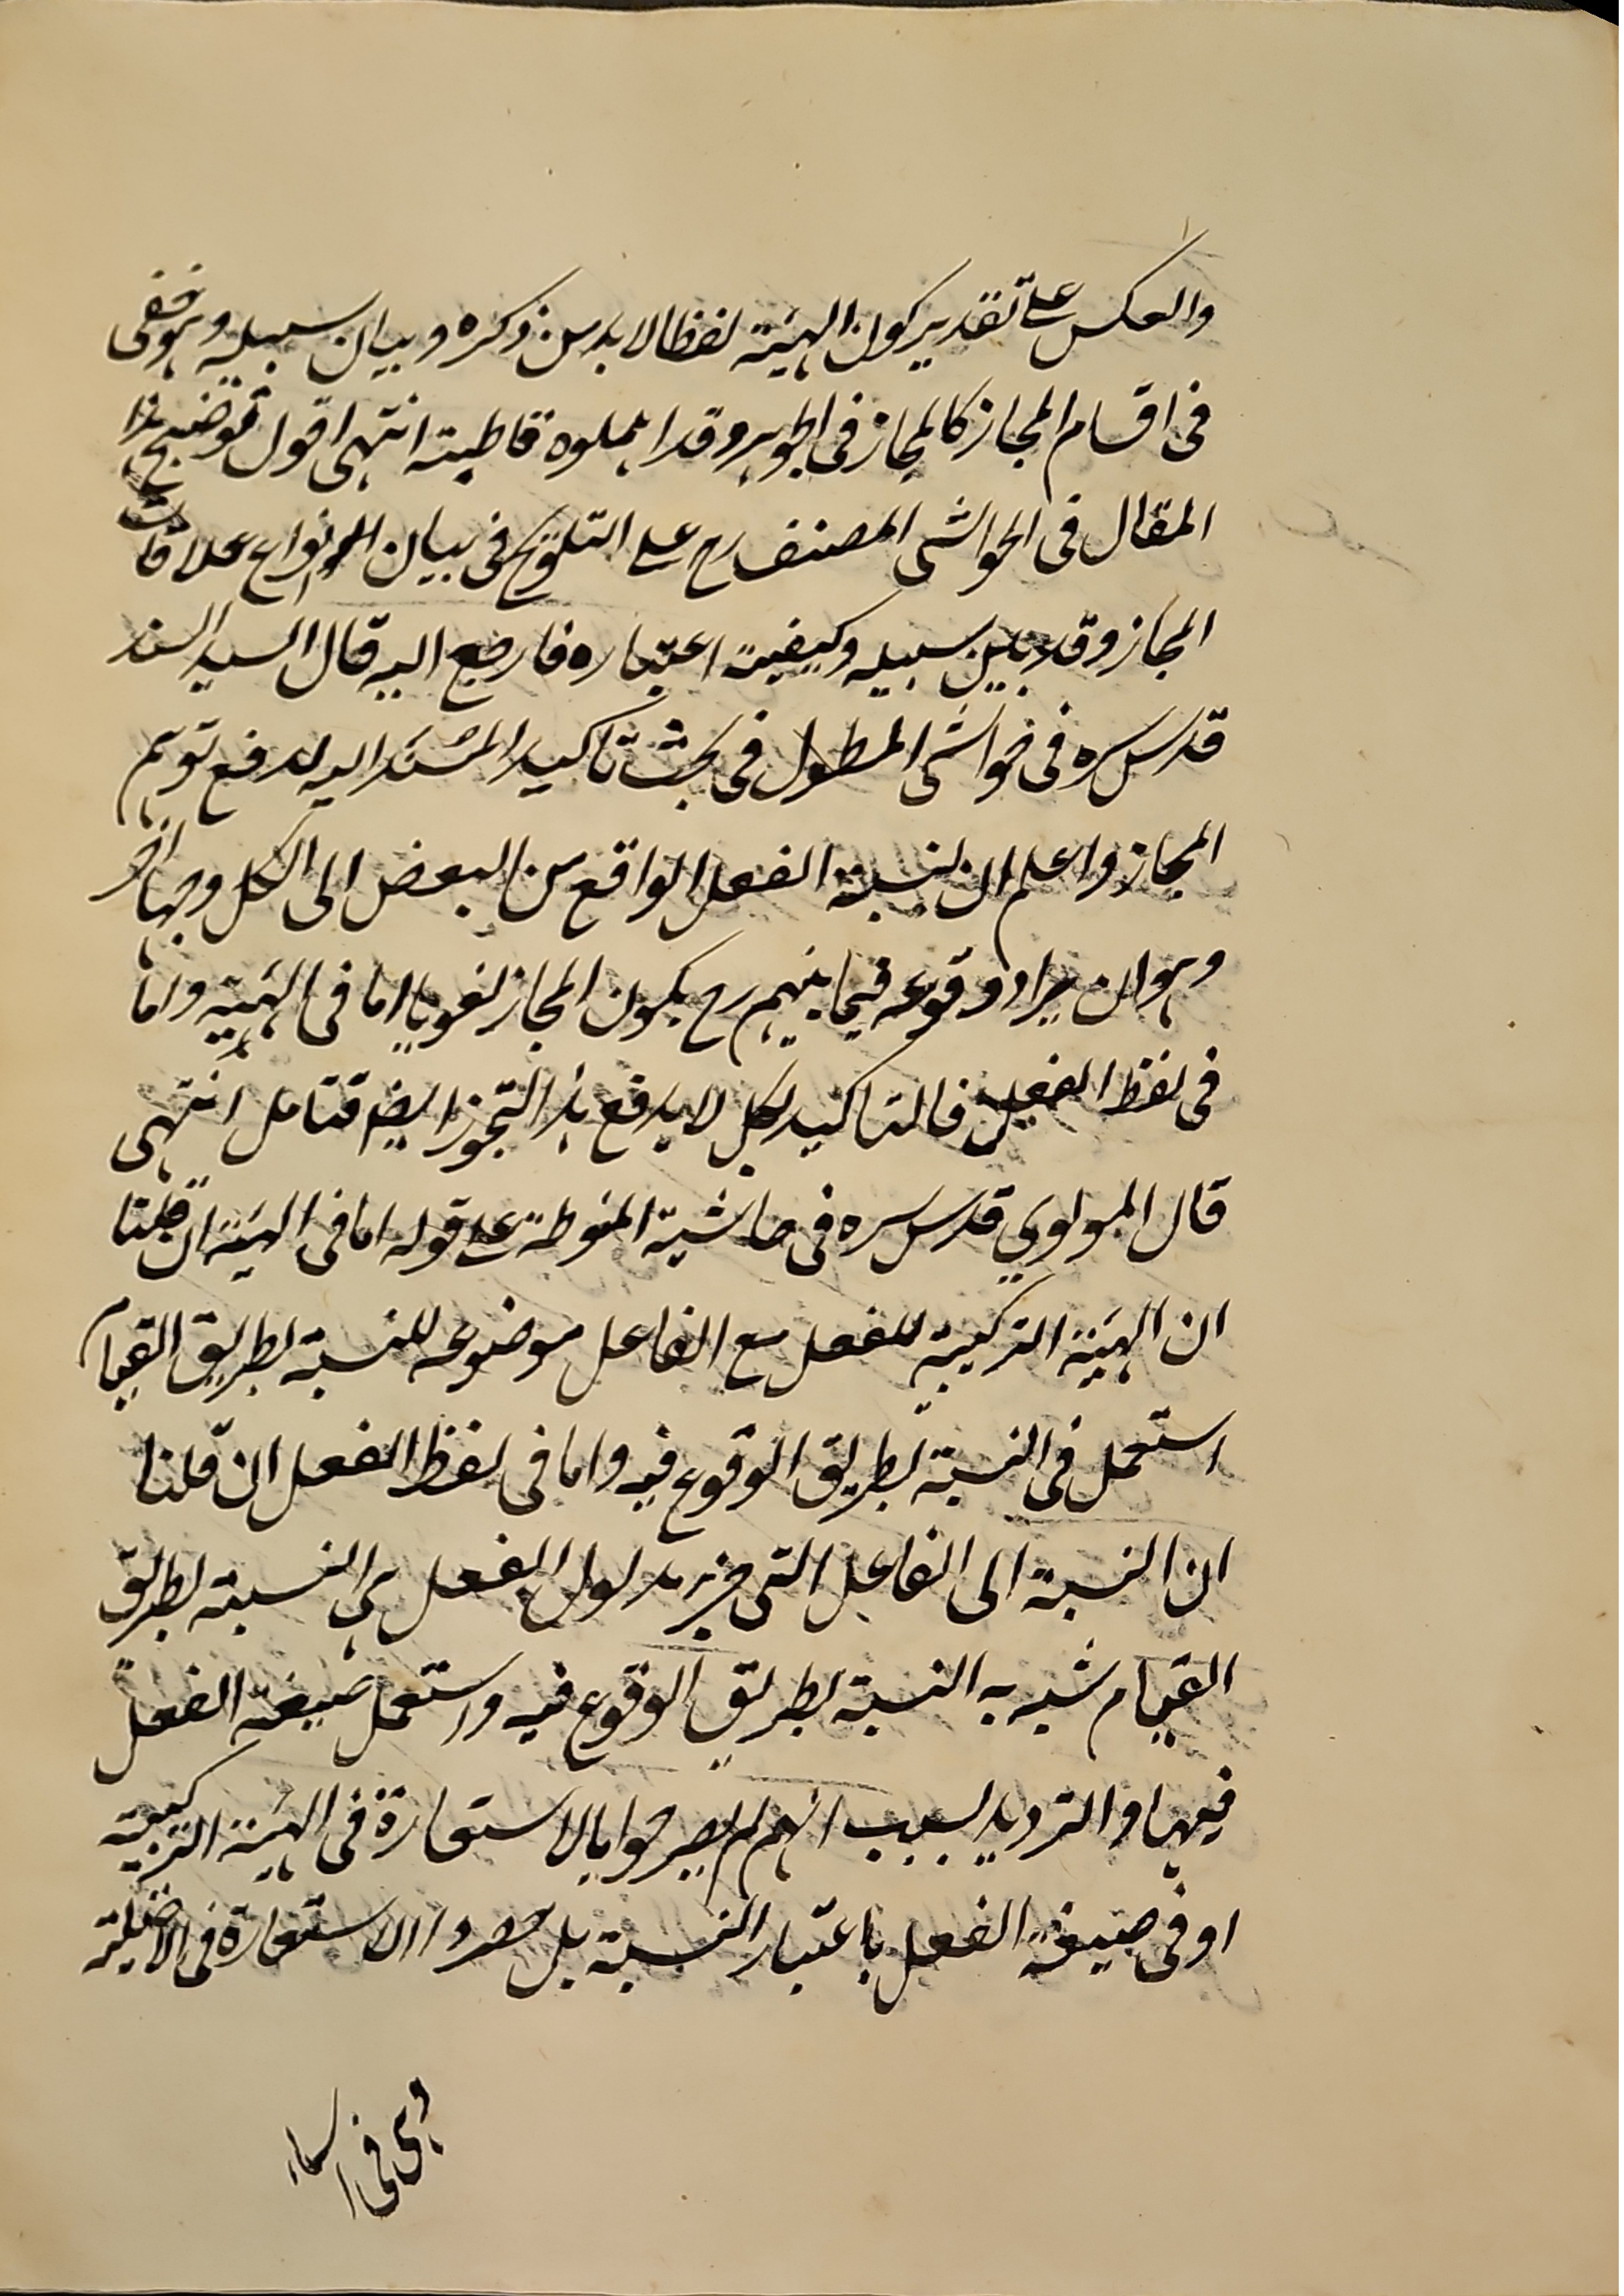 والعكس على تقدير كون الهيئة لفظا لا بد من ذكره وبيان سبيله وهو خفى
فى اقسام المجاز كالمجاز فى الجوهر وقد اهملوه قاطبة انتهى اقول توضيح هذا
المقال فى الحواشى المصنف رح على التلويح فى بيان انواع علاقات
المجاز وقد بين سبيله وكيفية اعتباره فارجع اليه قال السيد السند
قدس سره فى حواشى المطول فى بحث تاكيد المسند اليه لدفع توهم
المجاز واعلم ان لنسبة الفعل الواقع من البعض الى الكل وجها اخر
وهو ان يراد وقوعه فيما بينهم رح يكون المجاز لغويا اما فى الهيئة واما
فى لفظ الفعل فالتاكيد بكل لا يدفع هذا التجوز ايضا فتامل انتهى
قال المولوي قدس سره فى حاشية المنوطة على قوله اما فى الهيئة ان قلنا
ان الهيئة التركيبية للفعل مع الفاعل موضوعه للنسبة بطريق القيام
استعمل فى النسبة بطريق الوقوع فيه واما فى لفظ الفعل ان قلنا
ان النسبة الى الفاعل التى جزء مدلول الفعل هى النسبة بطريق
القيام شبه به النسبة بطريق الوقوع فيه واستعمل صيغة الفعل
فيها والترديد بسبب انهم لم يصرحوا بالاستعارة فى الهيئة التركيبية
او فى صيغة الفعل باعتبار النسبة بل حصروا الاستعارة فى الاصلية
وهى فى اسماء